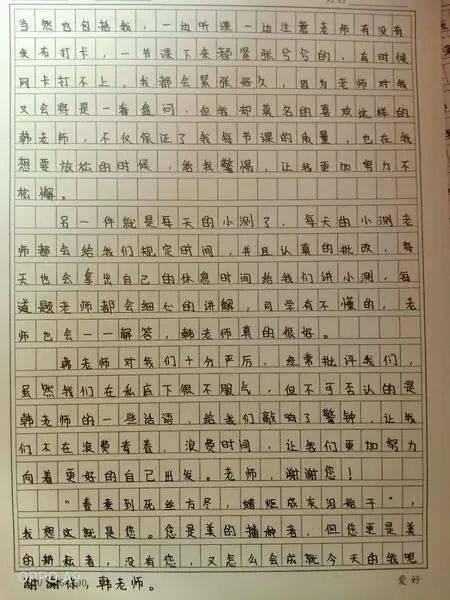 当然也包括我，一边听课一边注意老师有没有
发布打卡，一节课下来都紧张兮兮的，有时候
网卡打不上，我都会紧张好久，因为老师对我
又会将是一番盘问，但我却莫名的喜欢这样的
韩老师，不仅保证了我每节课的质量，也在我
想要放松的时候，给我警惕，让我更加努力不
松懈。
另一件就是每天的小测了，每天的小测老
师都会给我们规定时间，并且认真的批改，每
天也会拿出自己的休息时间给我们讲小测，每
道题老师都会细心的讲解，同学有不懂的，老
师也会一一解答，韩老师真的很好。
韩老师对我们十分严厉，经常批评我们，
虽然我们在私底下很不服气，但不可否认的是
韩老师的一些话语，给我们敲响了警钟，让我
们不在浪费青春，浪费时间，让我们更加努力
向着更好的自己出发。老师，谢谢您！
“春蚕到死丝方尽，蜡炬成灰泪始干”，
我想这就是您。您是美的播种者，但您更是美
的耕耘者，没有您，又怎么会成就今天的我呢
谢谢你，韩老师。
OPPO A9
爱好